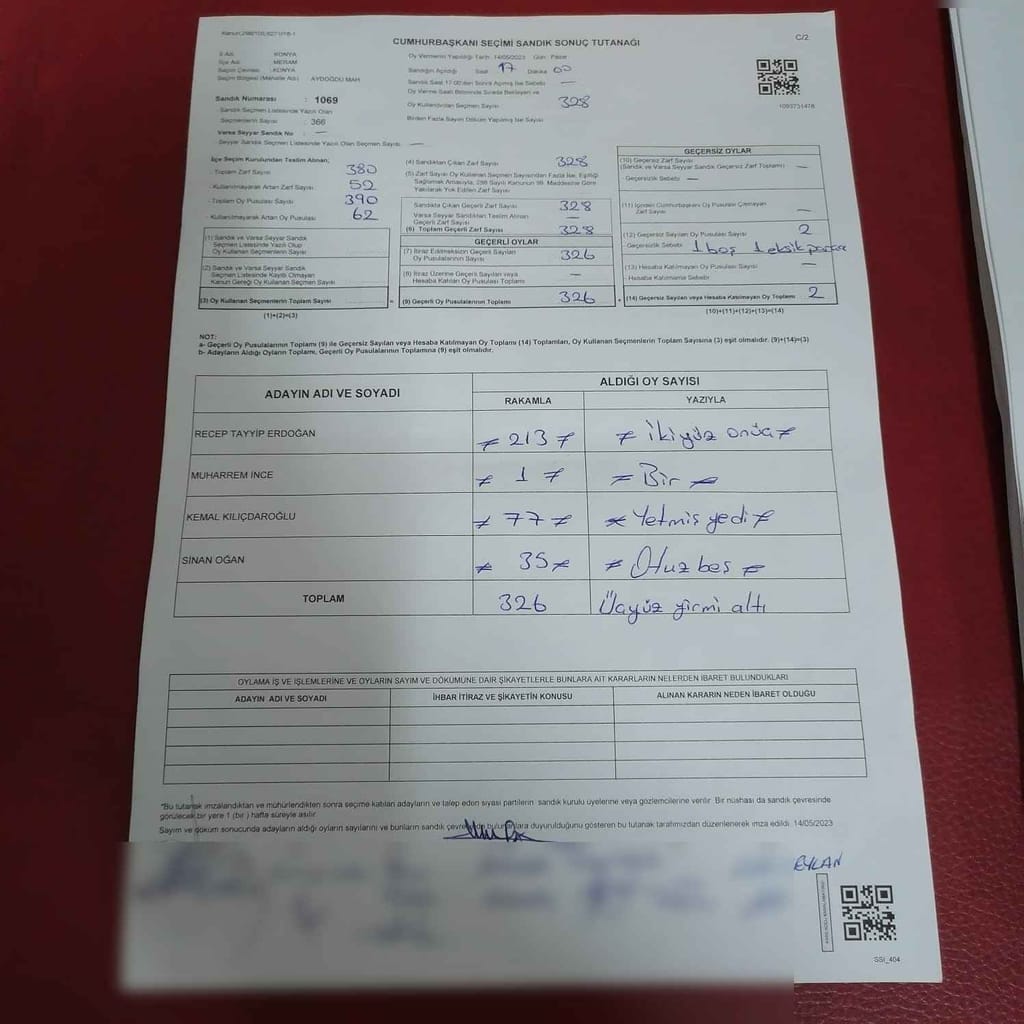 C/2
CUMHURBAŞKANI SEÇİMİ SANDIK SONUÇ TUTANAĞI
İl Adı : KONYA
İlçe Adı : MERAM
Seçim Çevresi : KONYA
Seçim Bölgesi (Mahalle Adı) : AYDOĞDU MAH
Oy Vermenin Yapıldığı Tarih : 14/05/2023 Gün : Pazar
Sandığın Açıldığı Saat 17 Dakika 00
Sandık Saat 17:00'den Sonra Açılmış İse Sebebi —
Oy Verme Saati Bitiminde Sırada Bekleyen ve
Oy Kullandırılan Seçmen Sayısı 328
Birden Fazla Sayım Döküm Yapılmış İse Sayısı
1093731478
Sandık Numarası : 1069
Sandık Seçmen Listesinde Yazılı Olan
Seçmenlerin Sayısı : 366
Varsa Seyyar Sandık No : —
Seyyar Sandık Seçmen Listesinde Yazılı Olan Seçmen Sayısı : —
İlçe Seçim Kurulundan Teslim Alınan;
- Toplam Zarf Sayısı 380
- Kullanılmayarak Artan Zarf Sayısı 52
- Toplam Oy Pusulası Sayısı 390
- Kullanılmayarak Artan Oy Pusulası 62
(1) Sandık ve Varsa Seyyar Sandık
Seçmen Listesinde Yazılı Olup
Oy Kullanan Seçmenlerin Sayısı
(2) Sandık ve Varsa Seyyar Sandık
Seçmen Listesinde Kayıtlı Olmayan
Kanun Gereği Oy Kullanan Seçmen Sayısı
(3) Oy Kullanan Seçmenlerin Toplam Sayısı
(1)+(2)=(3)
(4) Sandıktan Çıkan Zarf Sayısı 328
(5) Zarf Sayısı Oy Kullanan Seçmen Sayısından Fazla İse, Eşitliği
Sağlamak Amacıyla, 298 Sayılı Kanunun 98. Maddesine Göre
Yakılarak Yok Edilen Zarf Sayısı
Sandıkta Çıkan Geçerli Zarf Sayısı 328
Varsa Seyyar Sandıktan Teslim Alınan
Geçerli Zarf Sayısı —
(6) Toplam Geçerli Zarf Sayısı 328
GEÇERLİ OYLAR
(7) İtiraz Edilmeksizin Geçerli Sayılan
Oy Pusulalarının Sayısı 326
(8) İtiraz Üzerine Geçerli Sayılan veya
Hesaba Katılan Oy Pusulası Toplamı —
(9) Geçerli Oy Pusulalarının Toplamı 326
GEÇERSİZ OYLAR
(10) Geçersiz Zarf Sayısı
(Sandık ve Varsa Seyyar Sandık Geçersiz Zarf Toplamı) —
- Geçersizlik Sebebi —
(11) İçinden Cumhurbaşkanı Oy Pusulası Çıkmayan
Zarf Sayısı —
(12) Geçersiz Sayılan Oy Pusulası Sayısı 2
- Geçersizlik Sebebi 1 boş 1 eksik
(13) Hesaba Katılmayan Oy Pusulası Sayısı —
- Hesaba Katılmama Sebebi
(14) Geçersiz Sayılan veya Hesaba Katılmayan Oy Toplamı 2
(10)+(11)+(12)+(13)=(14)
NOT:
a- Geçerli Oy Pusulalarının Toplamı (9) ile Geçersiz Sayılan veya Hesaba Katılmayan Oy Toplamı (14) Toplamları, Oy Kullanan Seçmenlerin Toplam Sayısına (3) eşit olmalıdır. (9)+(14)=(3)
b- Adayların Aldığı Oyların Toplamı, Geçerli Oy Pusulalarının Toplamına (9) eşit olmalıdır.
ADAYIN ADI VE SOYADI ALDIĞI OY SAYISI
RAKAMLA YAZIYLA
RECEP TAYYİP ERDOĞAN ≠ 213 ≠ ≠ İkiyüz onüç ≠
MUHARREM İNCE ≠ 1 ≠ ≠ Bir ≠
KEMAL KILIÇDAROĞLU ≠ 77 ≠ ≠ Yetmiş yedi ≠
SİNAN OĞAN ≠ 35 ≠ ≠ Otuz beş ≠
TOPLAM 326 Üçyüz yirmi altı
OYLAMA İŞ VE İŞLEMLERİNE VE OYLARIN SAYIM VE DÖKÜMÜNE DAİR ŞİKAYETLERLE BUNLARA AİT KARARLARIN NELERDEN İBARET BULUNDUKLARI
ADAYIN ADI VE SOYADI İHBAR İTİRAZ VE ŞİKAYETİN KONUSU ALINAN KARARIN NEDEN İBARET OLDUĞU
*Bu tutanak imzalandıktan ve mühürlendikten sonra seçime katılan adayların ve talep eden siyasi partilerin sandık kurulu üyelerine veya gözlemcilerine verilir. Bir nüshası da sandık çevresinde
görülecek bir yere 1 (bir) hafta süreyle asılır.
Sayım ve döküm sonucunda adayların aldığı oyların sayılarını ve bunların sandık çevresinde bulunanlara duyurulduğunu gösteren bu tutanak tarafımızdan düzenlenerek imza edildi. 14/05/2023
EYLAN
SSI_404